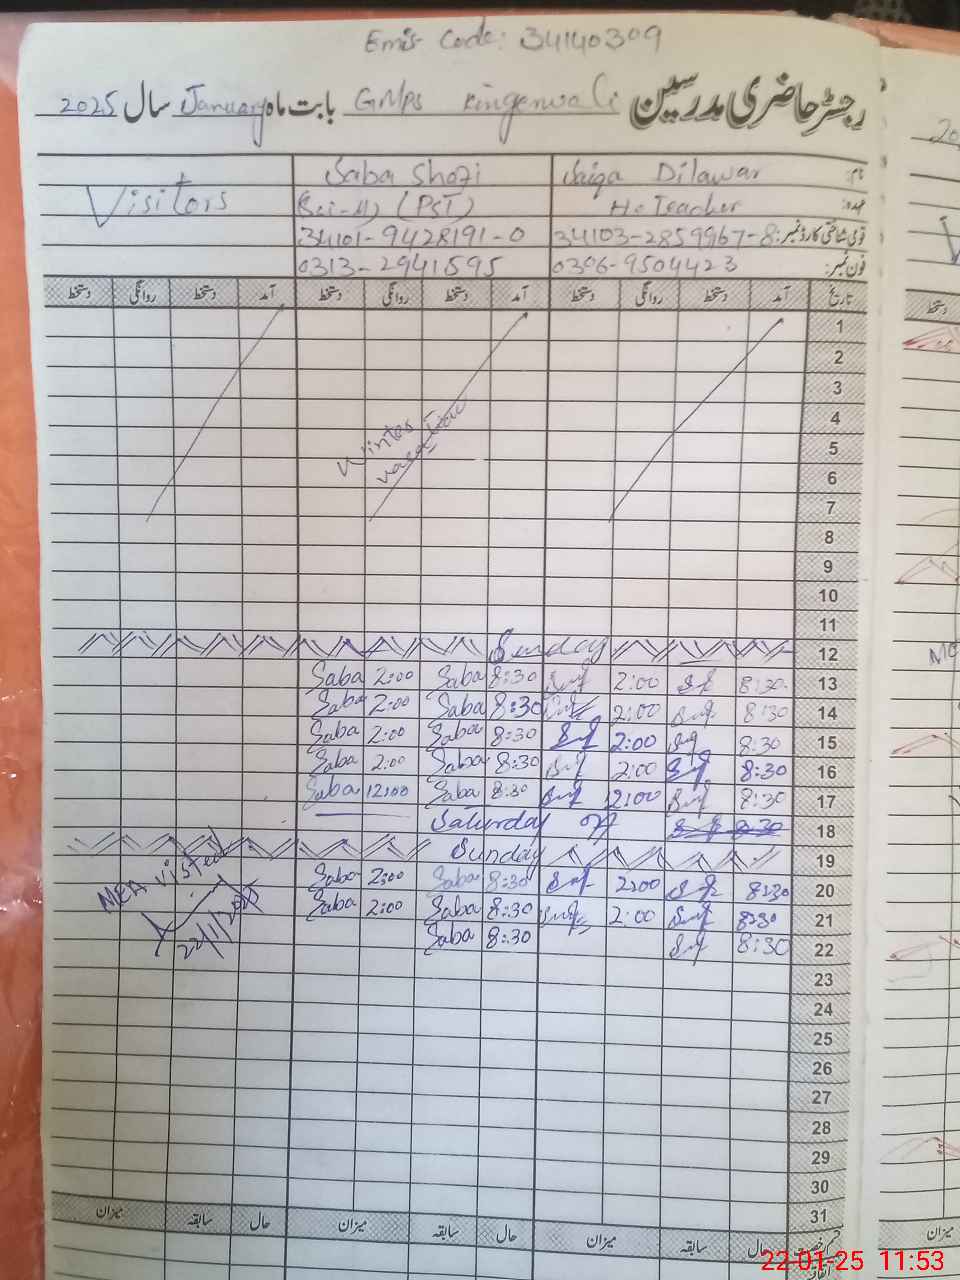 Emis Code: 34140309
رجسٹر حاضری مدرسین GMPS بابت ماہ January سال 2025
نام: Saiqa Dilawar Saba Shozi Visitors
عہدہ: H. Teacher (PST)
قومی شناختی کارڈ نمبر: 34103-2859967-8 34101-9428191-0
فون نمبر: 0306-9504423 0313-2941595
تاریخ آمد دستخط روانگی دستخط آمد دستخط روانگی دستخط آمد دستخط روانگی دستخط
1
2
3
4
Winter
5
vacation
6
7
8
9
10
11
12 Sunday
13 8:30 2:00 8:30 Saba 2:00 Saba
14 8:30 2:00 8:30 Saba 2:00 Saba
15 8:30 2:00 8:30 Saba 2:00 Saba
16 8:30 2:00 8:30 Saba 2:00 Saba
17 8:30 12:00 8:30 Saba 12:00 Saba
18 8:30 Saturday off
19 Sunday
20 8:30 2:00 8:30 Saba 2:00 Saba
21 8:30 2:00 8:30 Saba 2:00 Saba
22 8:30 8:30 Saba
MEA visited
22/1/2025
23
24
25
26
27
28
29
30
31
حال سابقہ میزان حال سابقہ میزان حال سابقہ میزان
22-01-25 11:53